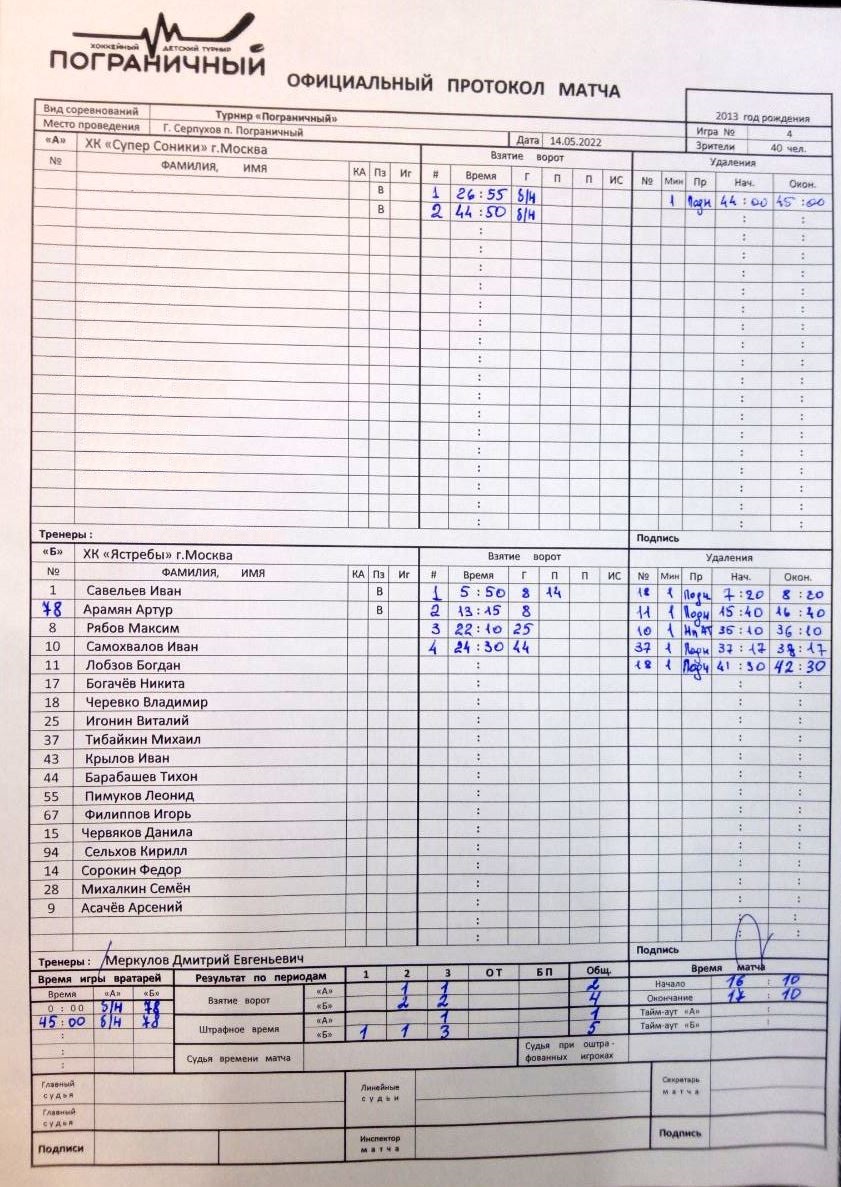 ХОККЕЙНЫЙ ДЕТСКИЙ ТУРНИР
ПОГРАНИЧНЫЙ
ОФИЦИАЛЬНЫЙ ПРОТОКОЛ МАТЧА
Вид соревнований Турнир «Пограничный» 2013 год рождения
Место проведения Г. Серпухов п. Пограничный Дата 14.05.2022 Игра № 4
Зрители 40 чел.
«А» ХК «Супер Соники» г.Москва Взятие ворот Удаления
№ ФАМИЛИЯ, ИМЯ КА Пз Иг # Время Г П П ИС № Мин Пр Нач. Окон.
В 1 26:55 б/н 1 Подн 44:00 45:00
В 2 44:50 б/н
Тренеры : Подпись
«Б» ХК «Ястребы» г.Москва Взятие ворот Удаления
№ ФАМИЛИЯ, ИМЯ КА Пз Иг # Время Г П П ИС № Мин Пр Нач. Окон.
1 Савельев Иван В 1 5:50 8 14 18 1 Подн 7:20 8:20
78 Арамян Артур В 2 13:15 8 11 1 Подн 15:40 16:40
8 Рябов Максим 3 22:10 25 10 1 35:10 36:10
10 Самохвалов Иван 4 24:30 44 37 1 Подн 37:17 38:17
11 Лобзов Богдан 18 1 Подн 41:30 42:30
17 Богачёв Никита
18 Черевко Владимир
25 Игонин Виталий
37 Тибайкин Михаил
43 Крылов Иван
44 Барабашев Тихон
55 Пимуков Леонид
67 Филиппов Игорь
15 Червяков Данила
94 Сельхов Кирилл
14 Сорокин Федор
28 Михалкин Семён
9 Асачёв Арсений
Тренеры : Меркулов Дмитрий Евгеньевич Подпись
Время игры вратарей Результат по периодам 1 2 3 ОТ БП Общ. Время матча
Время «А» «Б» Взятие ворот «А» 1 1 2 Начало 16 : 10
0 : 00 б/н 78 «Б» 2 2 4 Окончание 17 : 10
45:00 б/н 78 Штрафное время «А» 1 1 Тайм-аут «А» :
«Б» 1 1 3 5 Тайм-аут «Б» :
Судья времени матча Судья при оштра-
фованных игроках
Главный судья Линейные судьи Секретарь матча
Главный судья
Подписи Инспектор матча Подпись